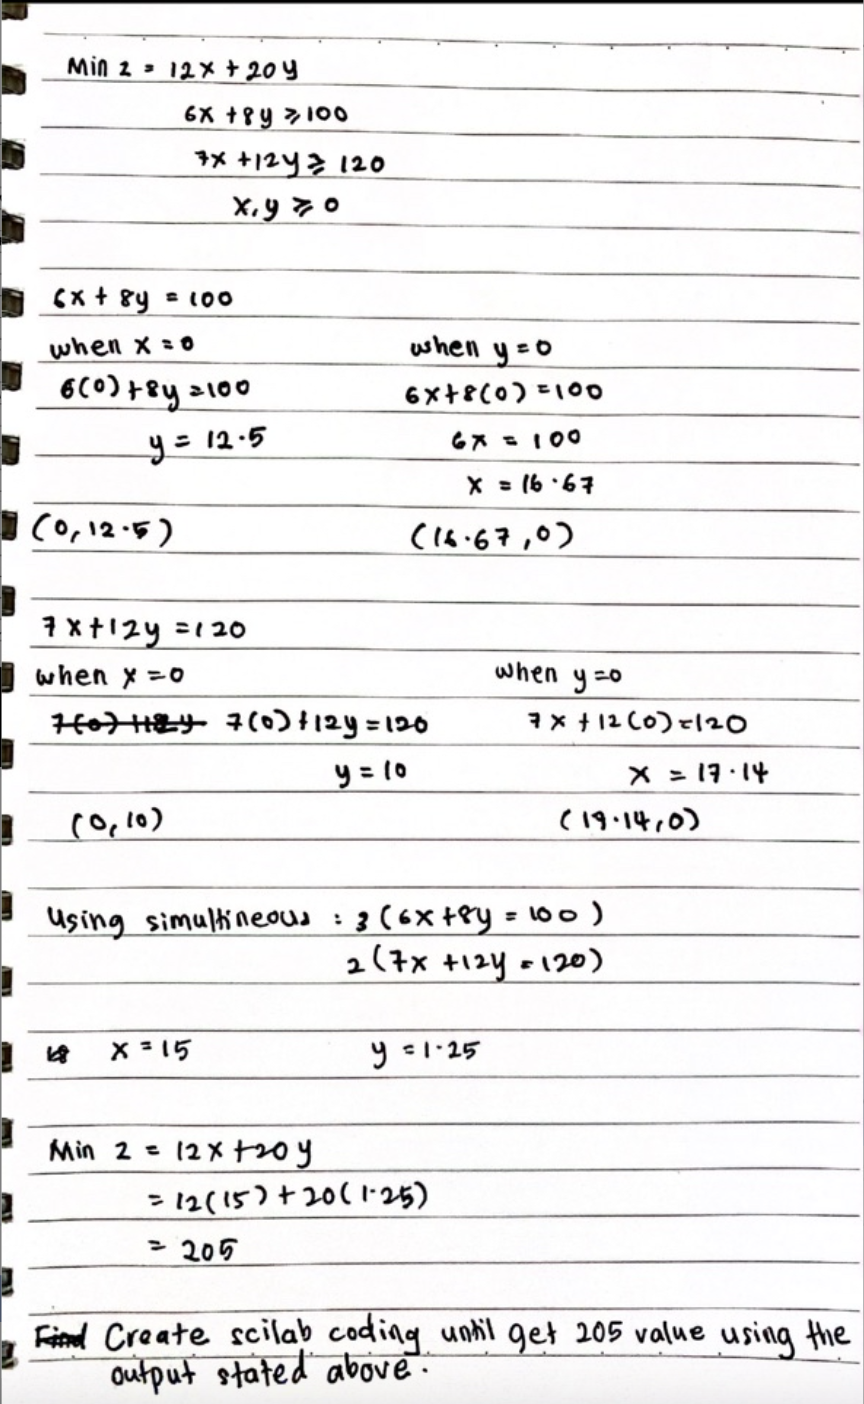 Min z = 12x + 20y
6x + 8y ⩾ 100
7x + 12y ⩾ 120
x, y ⩾ 0
6x + 8y = 100
when x = 0 when y = 0
6(0) + 8y = 100 6x + 8(0) = 100
y = 12.5 6x = 100
x = 16.67
(0, 12.5) (16.67, 0)
7x + 12y = 120
when x = 0 when y = 0
7(0) + 12y 7(0) + 12y = 120 7x + 12(0) = 120
y = 10 x = 17.14
(0, 10) (19.14, 0)
Using simultineous : 3(6x + 8y = 100)
2(7x + 12y = 120)
x = 15 y = 1.25
Min z = 12x + 20y
= 12(15) + 20(1.25)
= 205
Find Create scilab coding until get 205 value using the
output stated above.